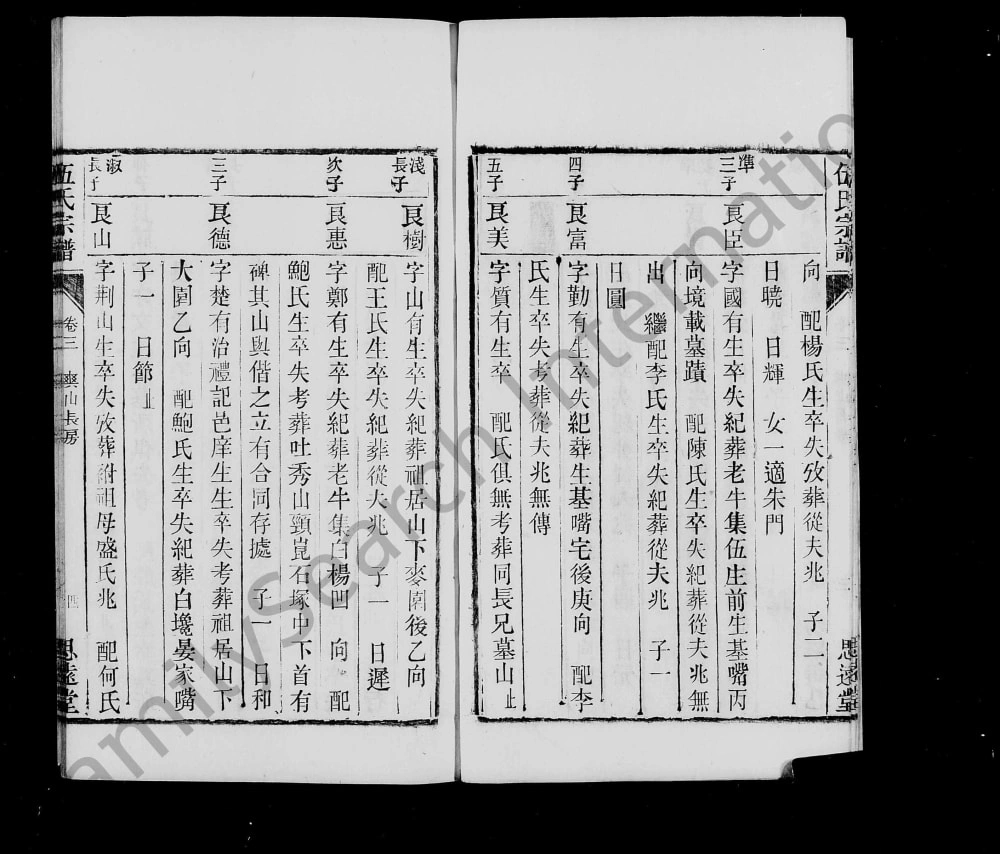 伍氏宗譜
思遠堂
向　配楊氏生卒失攷葬從夫兆　子二
日曉　日輝　女一適朱門
準三子　良臣　字國有生卒失紀葬老牛集伍庄前生基嘴丙
向境載墓蹟　配陳氏生卒失紀葬從夫兆無
出　繼配李氏生卒失紀葬從夫兆　子一
日圓
四子　良富　字勤有生卒失紀葬生基嘴宅後庚向　配李
氏生卒失考葬從夫兆無傳
五子　良美　字質有生卒　配氏俱無考葬同長兄墓山止
淺長子　良樹　字山有生卒失紀葬祖居山下麥園後乙向
配王氏生卒失紀葬從夫兆　子一　日遲
次子　良惠　字鄭有生卒失紀葬老牛集白楊凹　向　配
鮑氏生卒失考葬吐秀山頸崑石塚中下首有
碑其山與偕之立有合同存據　子一　日和
三子　良德　字楚有治禮記邑庠生生卒失考葬祖居山下
大園乙向　配鮑氏生卒失紀葬白墖晏家嘴
子一　日節止
淑長子　良山　字荆山生卒失攷葬祔祖母盛氏兆　配何氏
伍氏宗譜　卷三　山長房　四　思遠堂
FamilySearch International